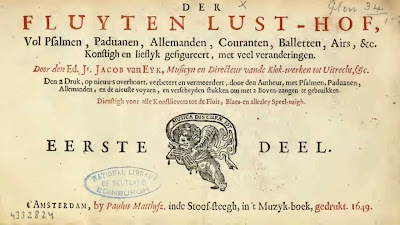 DER
FLUYTEN LUST-HOF,
Vol Psalmen, Paduanen, Allemanden, Couranten, Balletten, Airs, &c.
Konstigh en lieflyk gefigureert, met veel veranderingen.
Door den Ed. Jr. JACOB van EYK, Musicyn en Directeur vande Klok-werken tot Uitrecht, &c.
Den 2 Druk, op nieuws overhoort, verbetert en vermeerdert, door den Autheur, met Psalmen, Paduanen,
Allemanden, en de nieuste voyzen, en verscheyden stukken om met 2 Boven-zangen te gebruikken.
Dienstigh voor alle Konstlievers tot de Fluit, Blaes- en allerley Speel-tuigh.
MUSICA DIIS CURÆ EST
EERSTE DEEL.
NATIONAL LIBRARY
OF SCOTLAND
EDINBURGH
t'AMSTERDAM, by Paulus Matthysz. inde Stoof-steegh, in't Muzyk-boek, gedrukt. 1649.
Glen 34